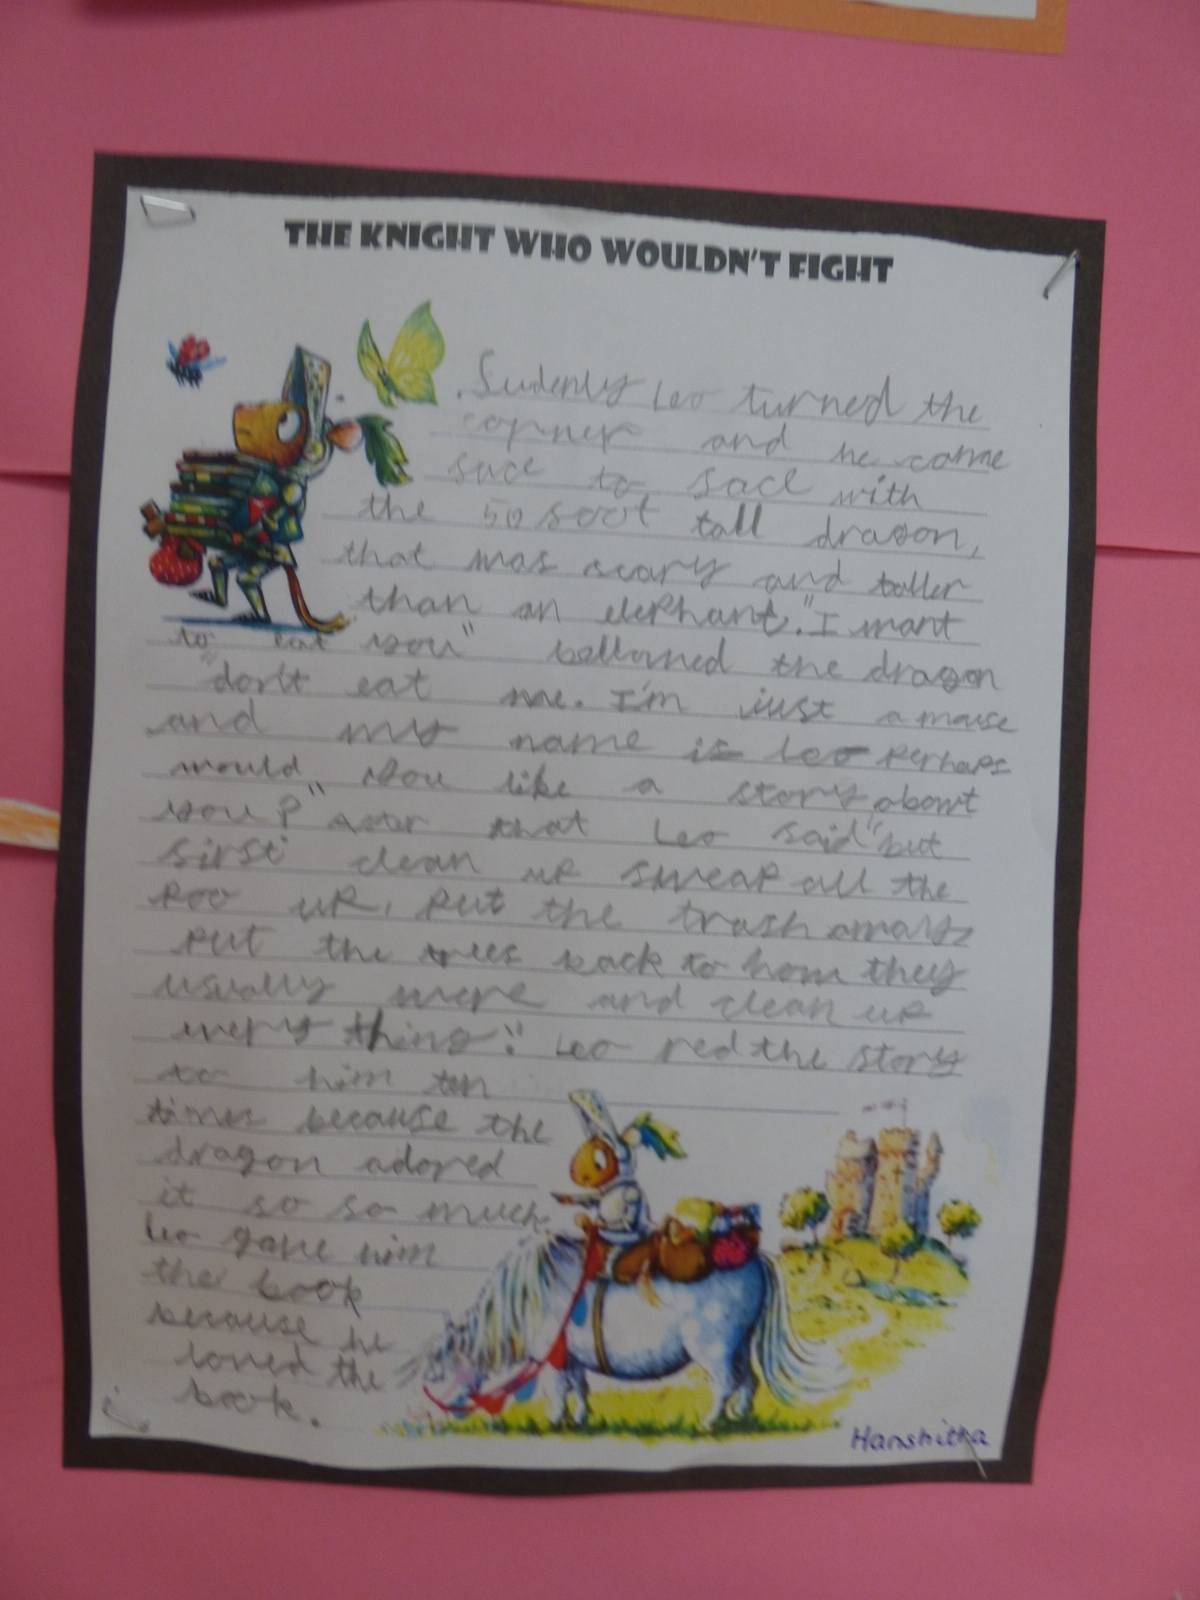 THE KNIGHT WHO WOULDN'T FIGHT
Sudenly Leo turned the
corner and he came
face to face with
the 50 foot tall dragon,
that was scary and taller
than an elephant. "I want
to eat you" bellowed the dragon
"don't eat me. I'm just a mouse
and my name is leo perhaps
would you like a story about
you?" After that Leo said "but
first clean up sweap all the
poo up, put the trash away
put the trees back to how they
usually were and clean up
every thing." Leo red the story
to him ten
times because the
dragon adored
it so so much.
Leo gave him
the book
because he
loved the
book.
Hanshitka